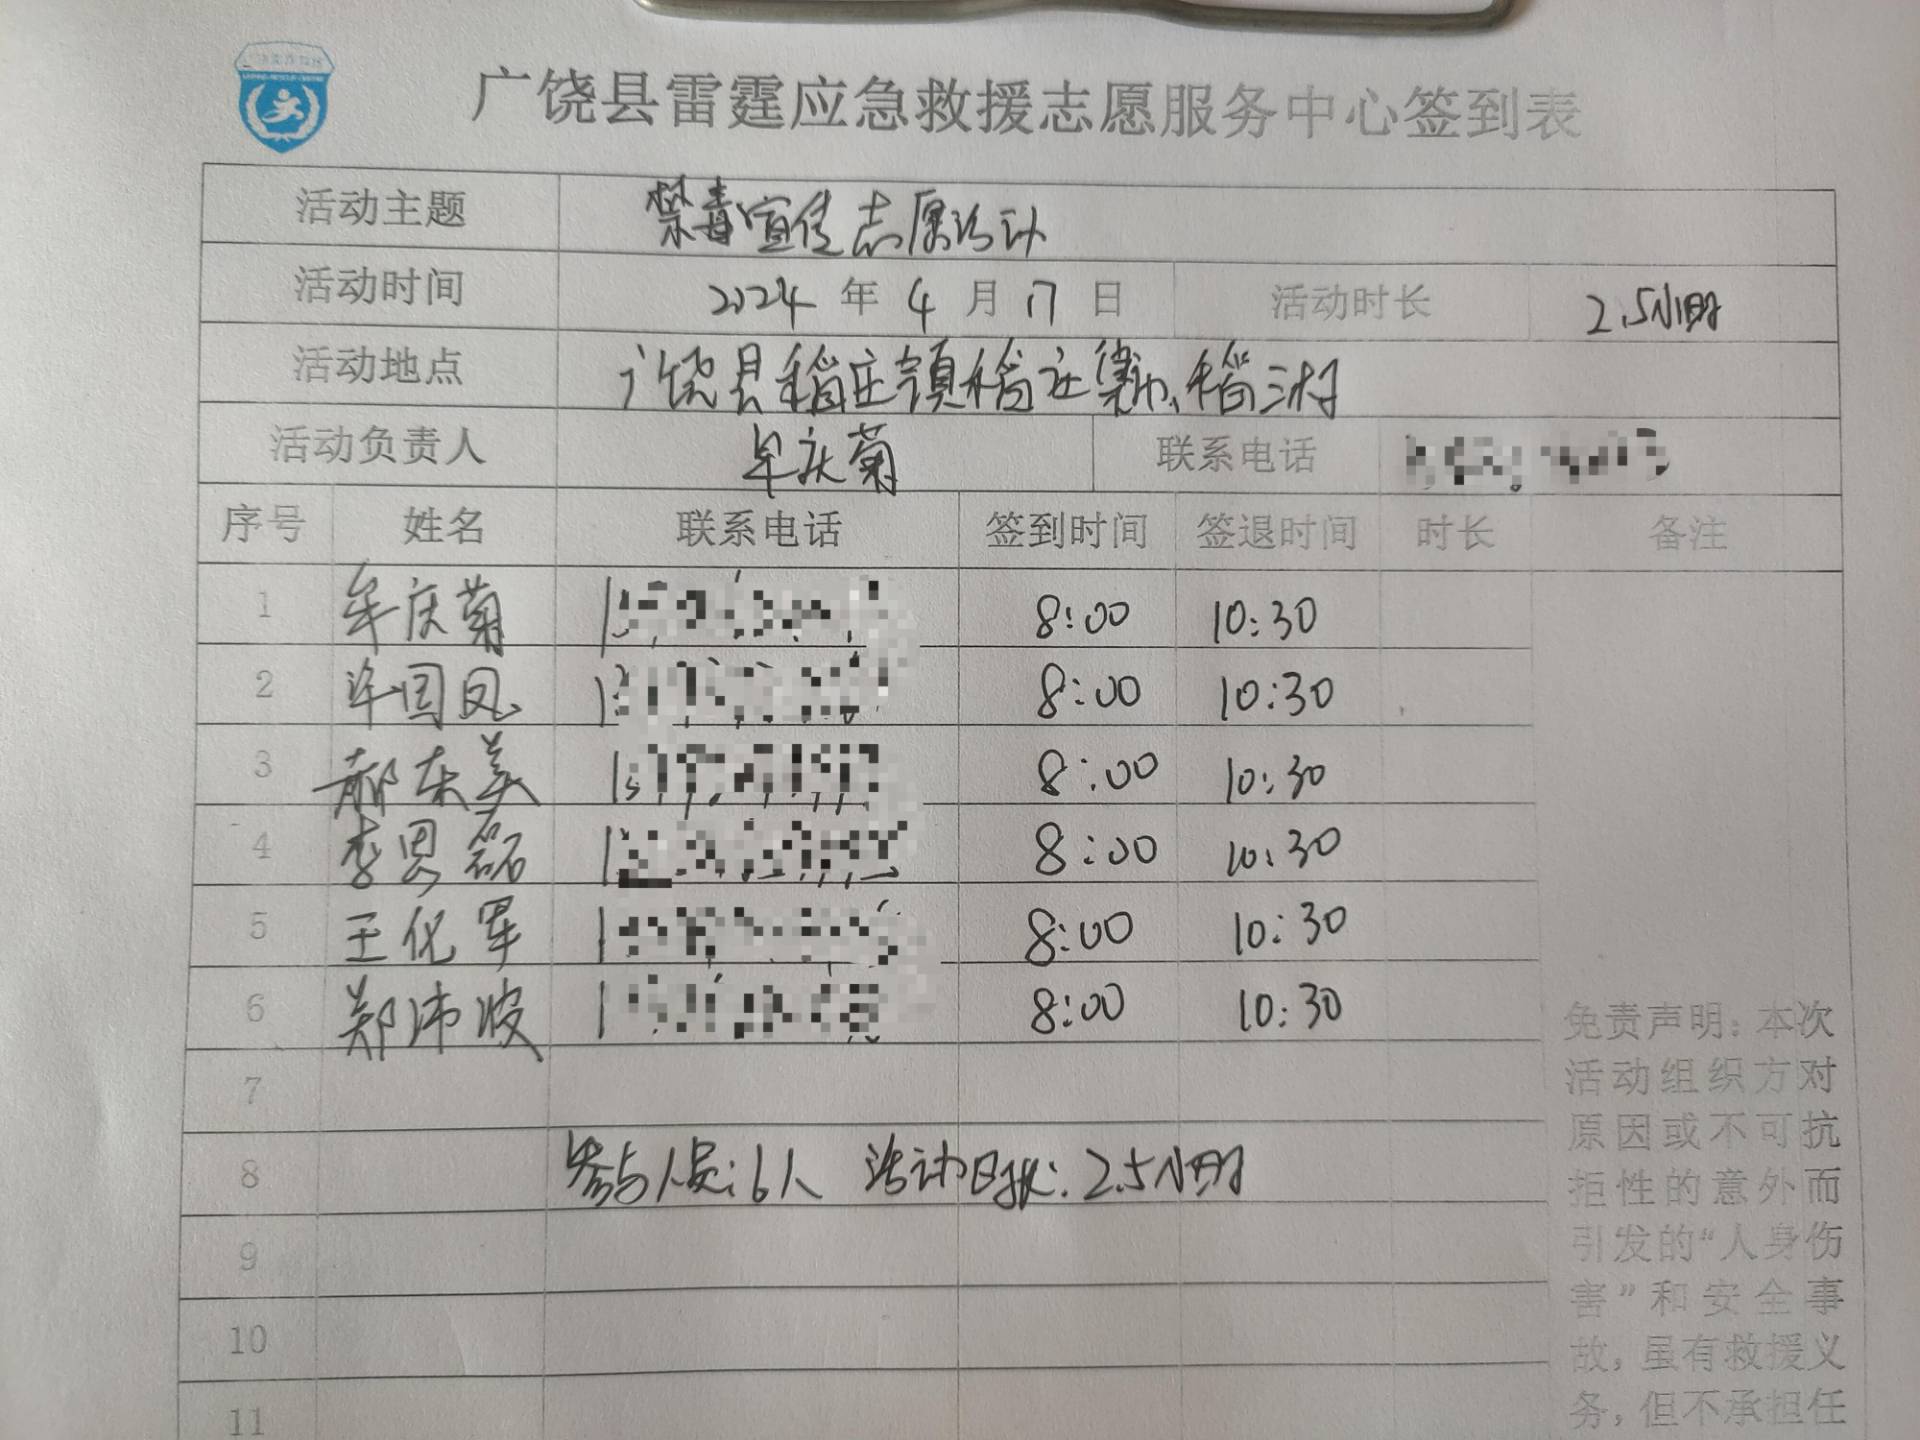 广饶县雷霆应急救援志愿服务中心签到表
活动主题 禁毒宣传志愿活动
活动时间 2024年4月17日 活动时长 2.5小时
活动地点 广饶县稻庄镇稻庄集、稻三村
活动负责人 牟庆菊 联系电话
序号 姓名 联系电话 签到时间 签退时间 时长 备注
1 牟庆菊 8:00 10:30
2 许国凤 8:00 10:30
3 郝东美 8:00 10:30
4 李恩磊 8:00 10:30
5 王化军 8:00 10:30
6 郑沛波 8:00 10:30
7
8 参与人员:6人 活动时长:2.5小时
9
10
11
免责声明：本次
活动组织方对
原因或不可抗
拒性的意外而
引发的“人身伤
害”和安全事
故，虽有救援义
务，但不承担任